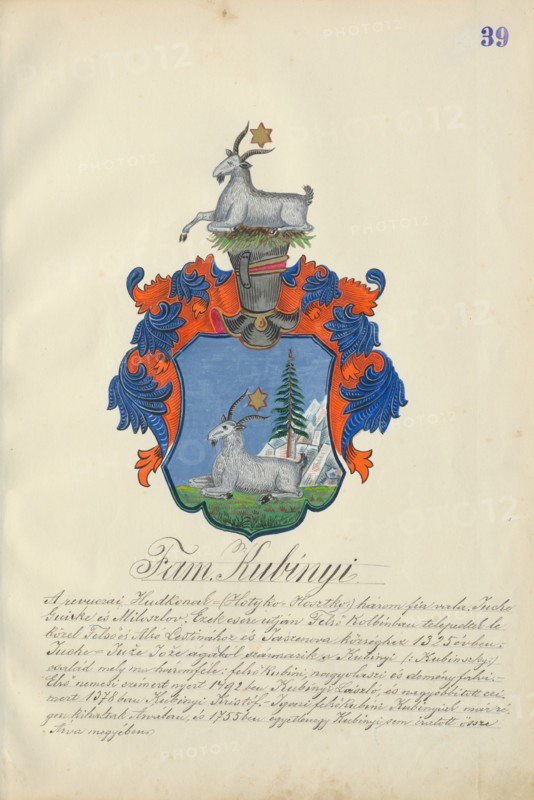 39
Fam. Kubínyi
A revuczai Hudkonak (Hotyko Hosztko) három fia vala: Sucho
és Miloszlov. Ezek csere útján Felső Kolbinban telepedtek le
közel Felső és Alsó Lestinához és Jaszenova községhez 1325 évben.
származik a Kubinyi (: Kubinszky:)
család mely ma háromféle: felső kubini, nagyolaszi és deményfalvi
Első nemesi czímert nyert 1492 ben Kubinyi László, és megújobbított czí-
mert 1578 ban Kubinyi Kristóf. Igazi felső kubini Kubinyiak már ré-
gen kihaltak Árvában, és 1755 ben egyetlenegy Kubinyi sem iratott össze
Árva megyében.
PHOTO12